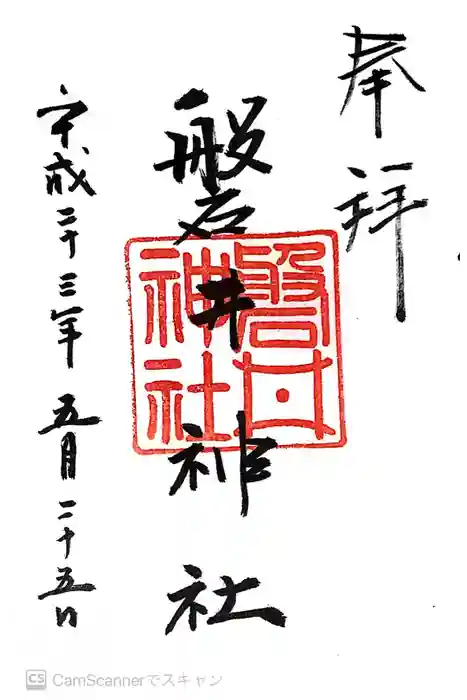 奉拝
磐井神社
磐井神社
平成二十三年五月二十五日
CS CamScannerでスキャン